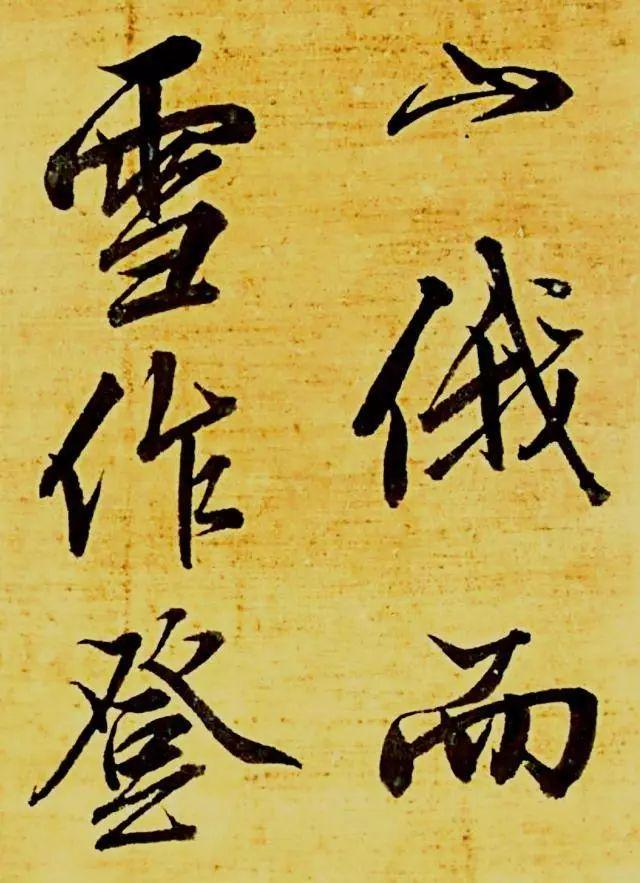 山俄而
雪作登